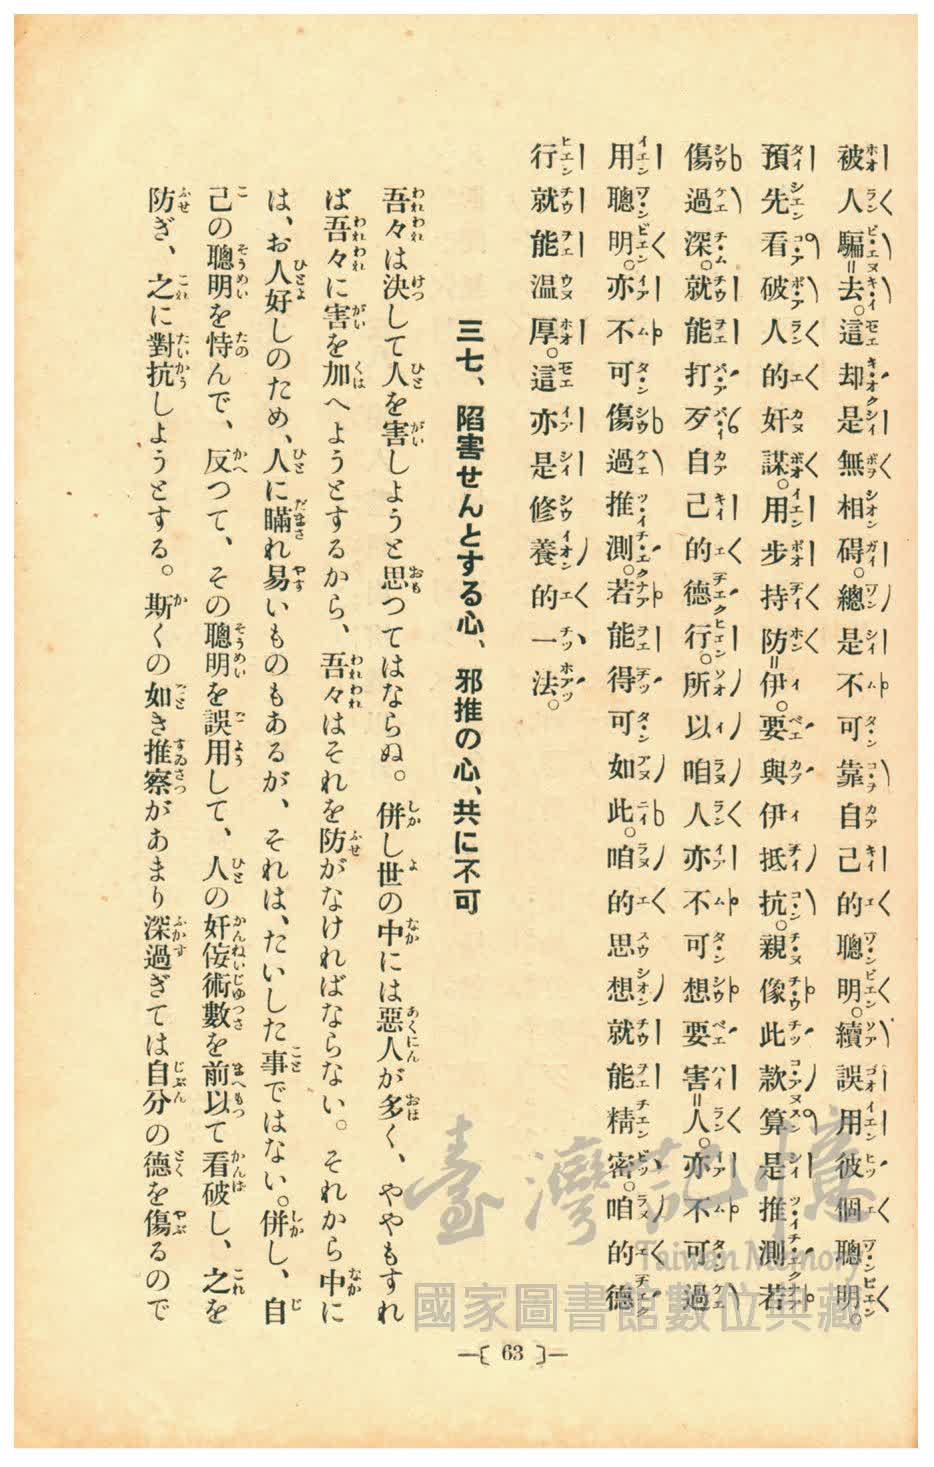 被人騙去。這却是無相碍。總是不可靠自己的聰明。續誤用彼個聰明。
預先看破人的奸謀。用步持防伊。要與伊抵抗。親像此款算是推測若
傷過深。就能打歹自己的德行。所以咱人亦不可想要害人。亦不可過
用聰明。亦不可傷過推測。若能得可如此。咱的思想就能精密。咱的德
行就能温厚。這亦是修養的一法。
三七、陷害せんとする心、邪推の心、共に不可
吾々は決して人を害しようと思つてはならぬ。併し世の中には惡人が多く、ややもすれ
ば吾々に害を加へようとするから、吾々はそれを防がなければならない。それから中に
は、お人好しのため、人に瞞れ易いものもあるが、それは、たいした事ではない。併し、自
己の聰明を恃んで、反つて、その聰明を誤用して、人の奸侫術數を前以て看破し、之を
防ぎ、之に對抗しようとする。斯くの如き推察があまり深過ぎては自分の德を傷るので
63
臺灣記憶
Taiwan Memory
國家圖書館數位典藏